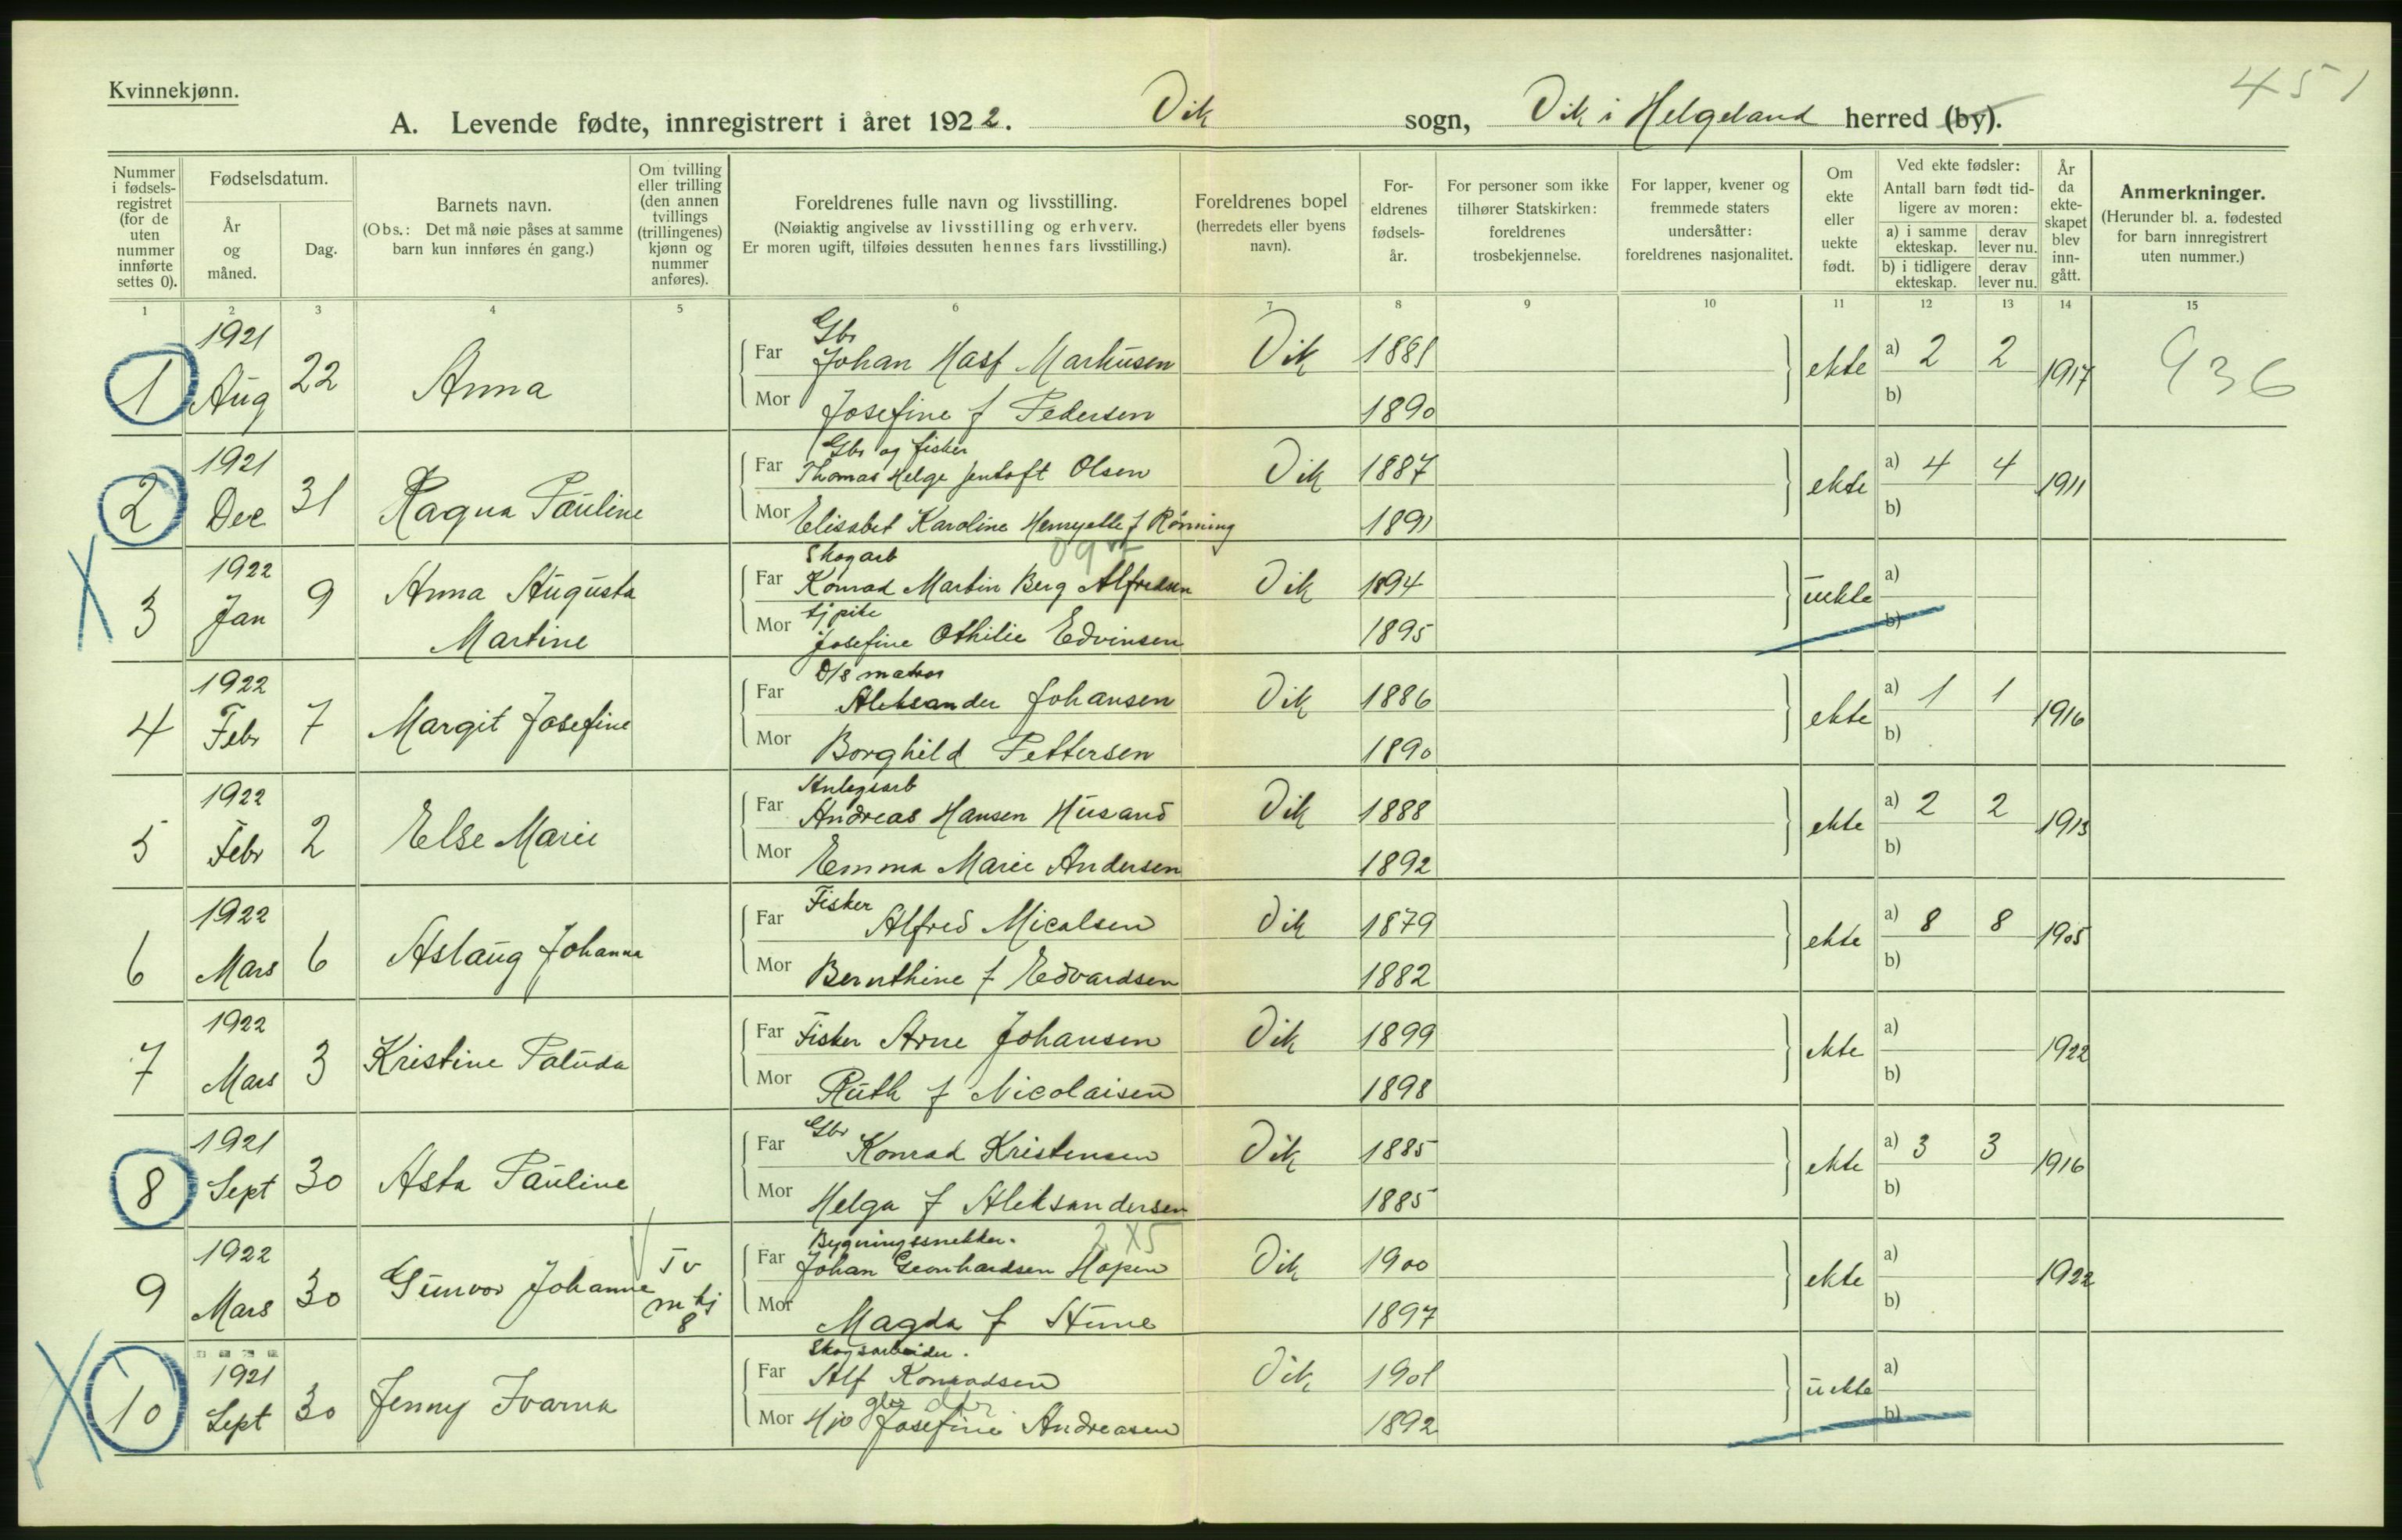 451
Kvinnekjønn.
A. Levende fødte, innregistrert i året 1922. Vik sogn, Vik i Helgeland herred (by).
Nummer i fødselsregistret (for de uten nummer innførte settes 0).
Fødselsdatum.
År og måned.
Dag.
Barnets navn.
(Obs.: Det må nøie påses at samme barn kun innføres én gang.)
Om tvilling eller trilling (den annen tvillings (trillingenes) kjønn og nummer anføres).
Foreldrenes fulle navn og livsstilling.
(Nøiaktig angivelse av livsstilling og erhverv.
Er moren ugift, tilføies dessuten hennes fars livsstilling.)
Foreldrenes bopel (herredets eller byens navn).
Foreldrenes fødselsår.
For personer som ikke tilhører Statskirken: foreldrenes trosbekjennelse.
For lapper, kvener og fremmede staters undersåtter: foreldrenes nasjonalitet.
Om ekte eller uekte født.
Ved ekte fødsler:
Antall barn født tidligere av moren:
a) i samme ekteskap. derav lever nu.
b) i tidligere ekteskap. derav lever nu.
År da ekteskapet blev inngått.
Anmerkninger.
(Herunder bl. a. fødested for barn innregistrert uten nummer.)
1 2 3 4 5 6 7 8 9 10 11 12 13 14 15
1 1921 Aug 22 Anna
Gbr
Far Johan Hast Markusen Vik 1881 ekte a) 2 2 1917 936
Mor Josefine f Pedersen 1890 b)
2 1921 Dec 31 Ragna Pauline
Gbr og fisker
Far Thomas Helge Jentoft Olsen Vik 1887 ekte a) 4 4 1911
Mor Elisabet Karoline Henryette f Rønning 1891 b)
3 1922 Jan 9 Anna Augusta Martine
Skogarb
Far Konrad Martin Berg Alfredsen Vik 1894 uekte a)
tjpike
Mor Josefine Othilie Edvinsen 1895 b)
4 1922 Febr 7 Margit Josefine
D/s matros
Far Aleksander Johansen Vik 1886 ekte a) 1 1 1916
Mor Borghild Pettersen 1890 b)
5 1922 Febr 2 Else Marie
Anlegsarb
Far Andreas Hansen Husand Vik 1888 ekte a) 2 2 1913
Mor Emma Marie Andersen 1892 b)
6 1922 Mars 6 Aslaug Johanna
Fisker
Far Alfred Micalsen Vik 1879 ekte a) 8 8 1905
Mor Bernthine f Edvardsen 1882 b)
7 1922 Mars 3 Kristine Paluda
Far Fisker Arne Johansen Vik 1899 ekte a) 1922
Mor Ruth f Nicolaisen 1898 b)
8 1921 Sept 30 Asta Pauline
Gbr
Far Konrad Kristensen Vik 1885 ekte a) 3 3 1916
Mor Helga f Aleksandersen 1885 b)
9 1922 Mars 30 Gunvor Johanne Tv m kj 8
Bygningssnekker. 2 X5
Far Johan Leonhardsen Hopen Vik 1900 ekte a) 1922
Mor Magda f Hune 1897 b)
10 1921 Sept 30 Jenny Ivarna
Skogsarbeider.
Far Alf Konradsen Vik 1901 uekte a)
Mor Josefine Andreasen 1892 b)